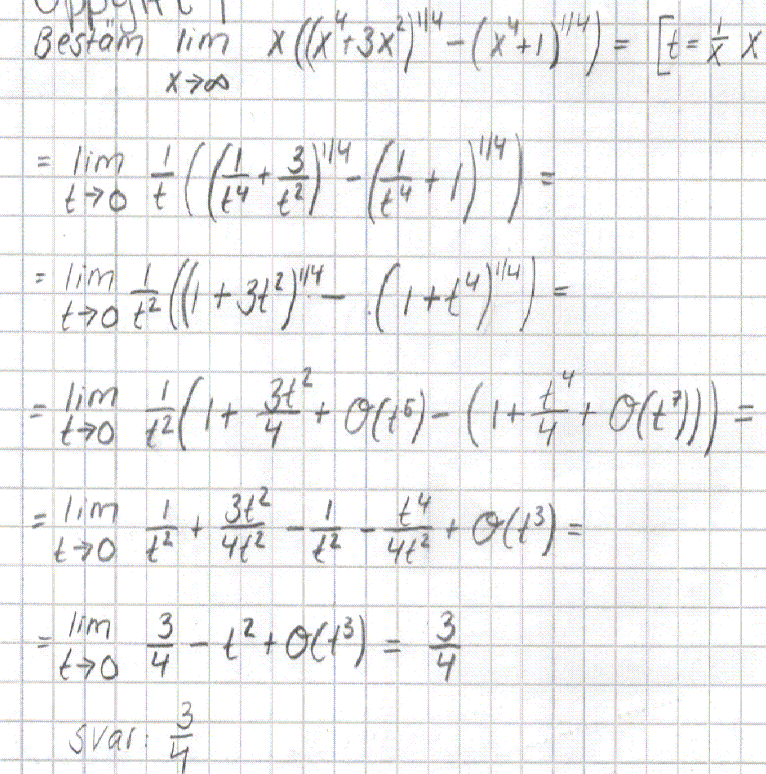 Uppgift 1
Bestäm lim x→∞ x((x⁴+3x²)^1/4 − (x⁴+1)^1/4) = [t = 1/x x
= lim t→0 1/t ((1/t⁴ + 3/t²)^1/4 − (1/t⁴ + 1)^1/4) =
= lim t→0 1/t² ((1 + 3t²)^1/4 − (1 + t⁴)^1/4) =
= lim t→0 1/t² (1 + 3t²/4 + O(t⁵) − (1 + t⁴/4 + O(t⁷))) =
= lim t→0 1/t² + 3t²/4t² − 1/t² − t⁴/4t² + O(t³) =
= lim t→0 3/4 − t² + O(t³) = 3/4
svar: 3/4